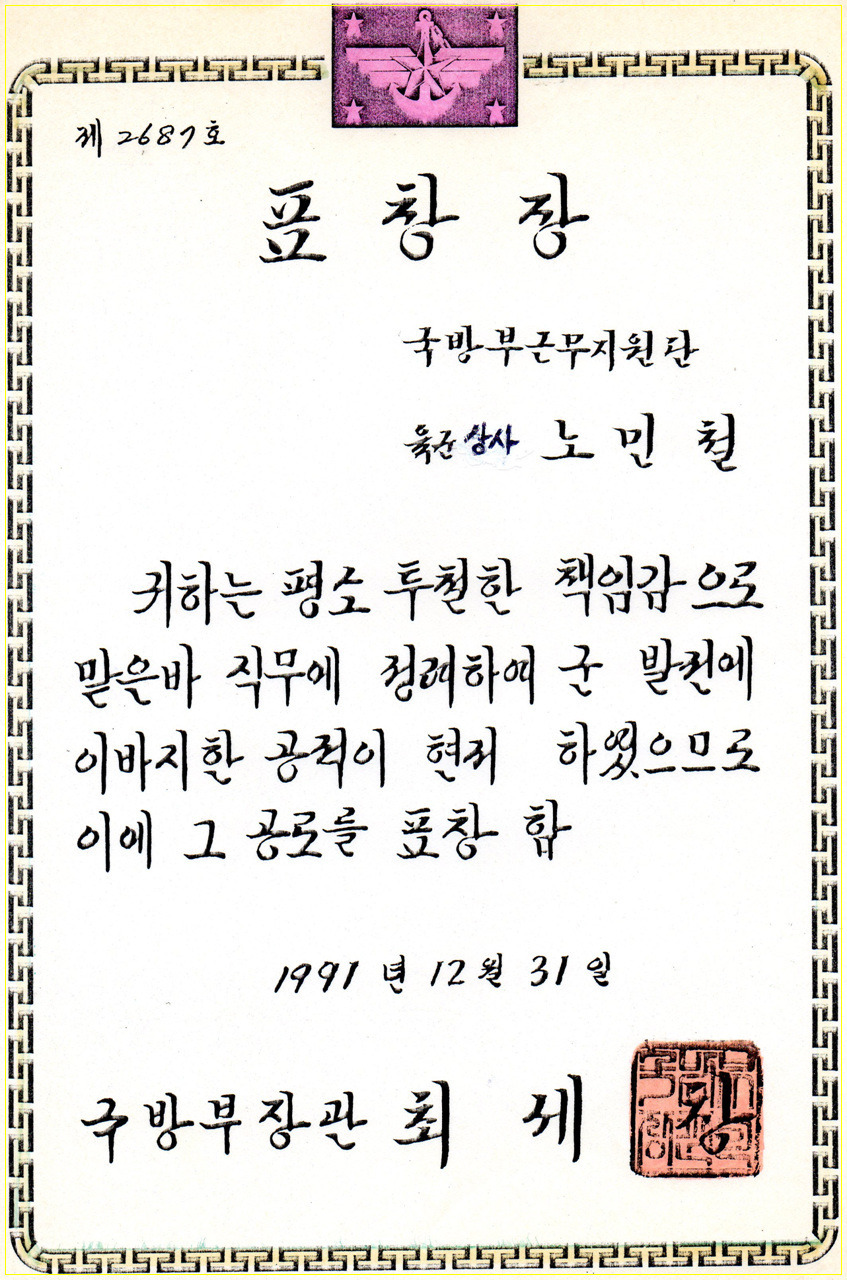 제 2687호
표 창 장
국방부근무지원단
육군상사 노 민 철
귀하는 평소 투철한 책임감으로
맡은바 직무에 정려하여 군 발전에
이바지한 공적이 현저 하였으므로
이에 그 공로를 표창 함
1991 년 12 월 31 일
국방부장관 최 세 창